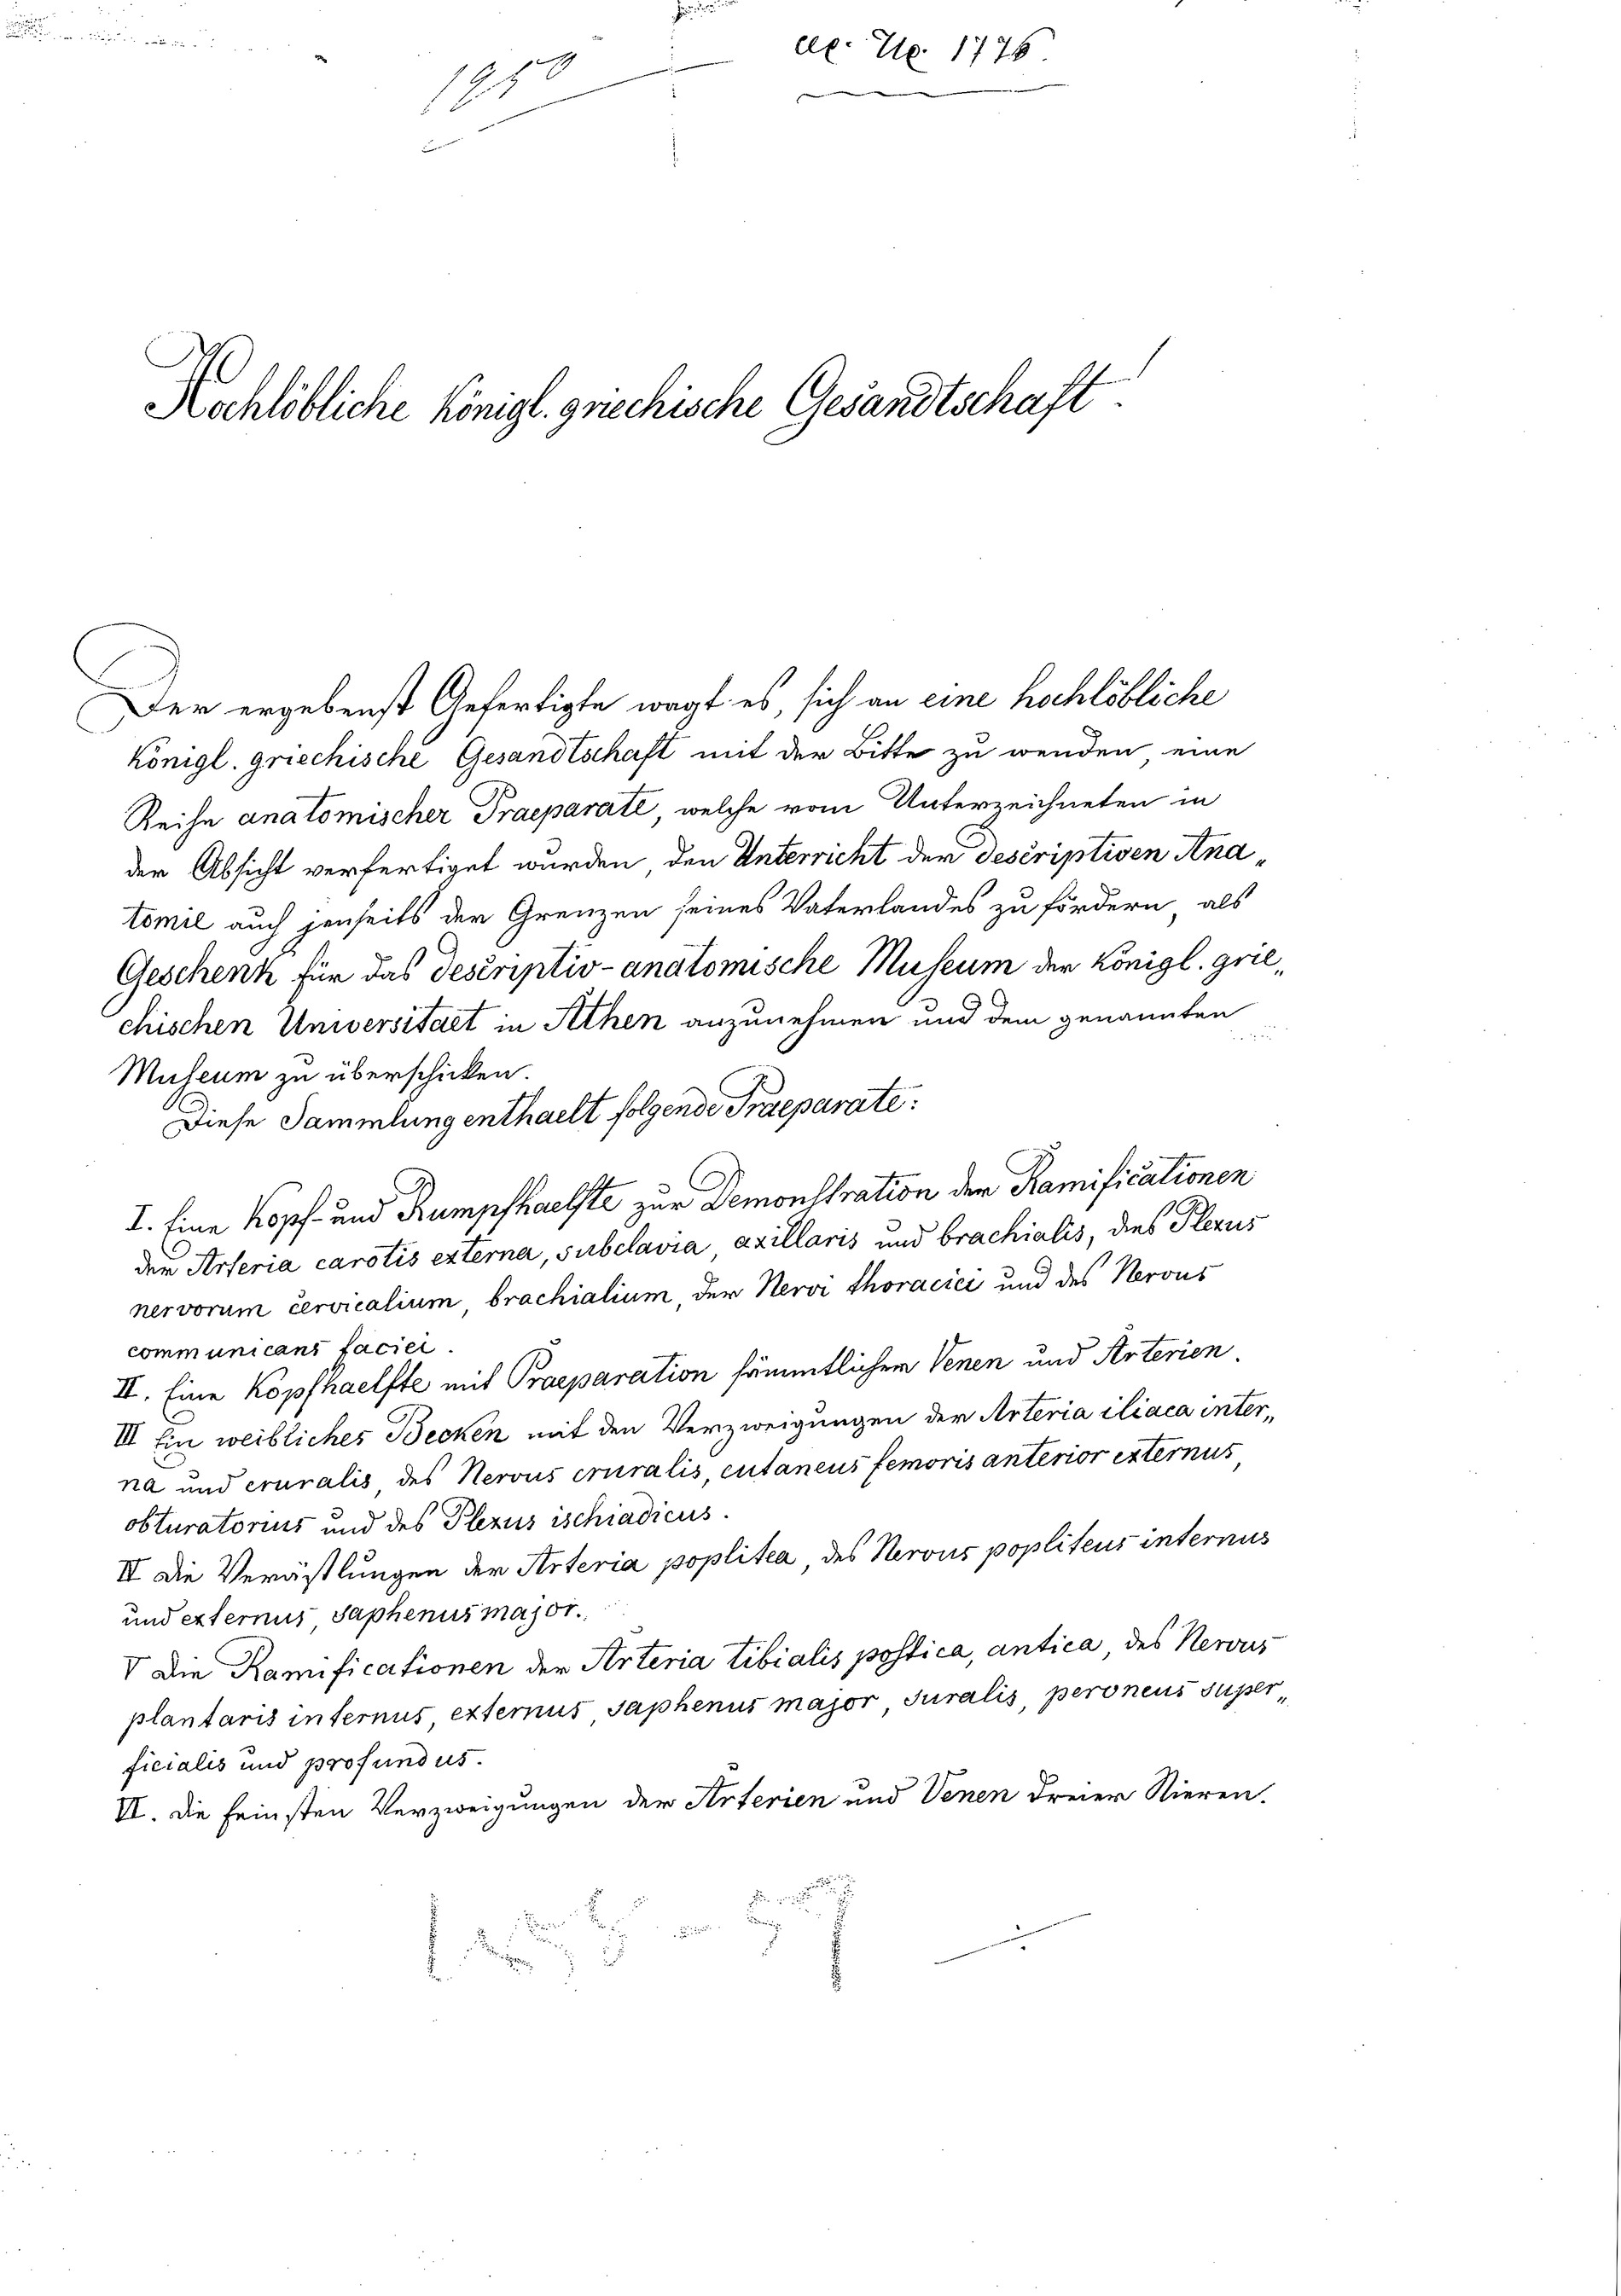 1776.
Hochlöbliche königl. griechische Gesandtschaft!
Der ergebenst Gefertigte wagt es, sich an eine hochlöbliche
königl. griechische Gesandtschaft mit der Bitte zu wenden, eine
Reihe anatomischer Praeparate, welche vom Unterzeichneten in
der Absicht verfertiget wurden, den Unterricht der descriptiven Ana„
tomie auch jenseits der Grenzen seines Vaterlandes zu fördern, als
Geschenk für das descriptiv-anatomische Museum der königl. grie„
chischen Universitaet in Athen anzunehmen und dem genannten
Museum zu überschicken.
Diese Sammlung enthaelt folgende Praeparate:
I. Eine Kopf- und Rumpfhaelfte zur Demonstration der Ramificationen
der Arteria carotis externa, subclavia, axillaris und brachialis, des Plexus
nervorum cervicalium, brachialium, der Nervi thoracici und des Nervus
communicans faciei.
II. Eine Kopfhaelfte mit Praeparation sämmtlicher Venen und Arterien.
III Ein weibliches Becken mit den Verzweigungen der Arteria iliaca inter„
na und cruralis, des Nervus cruralis, cutaneus femoris anterior externus,
obturatorius und des Plexus ischiadicus.
IV Die Verästlungen der Arteria poplitea, des Nervus popliteus internus
und externus, saphenus major.
V Die Ramificationen der Arteria tibialis postica, antica, des Nervus
plantaris internus, externus, saphenus major, suralis, peroneus super„
ficialis und profundus.
VI. Die feinsten Verzweigungen der Arterien und Venen dreier Nieren.